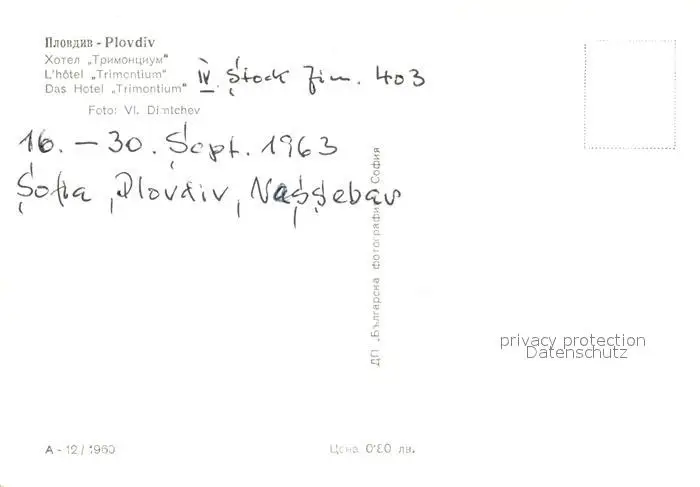 Пловдив - Plovdiv
Хотел „Тримонциум"
L'hôtel „Trimontium"
Das Hotel „Trimontium" IV. Stock Zim. 403
Foto: Vl. Dimtchev
16. – 30. Sept. 1963
Sofia, Plovdiv, Nessebar
ДП „Българска фотография" София
privacy protection
Datenschutz
А - 12/1960
Цена 0·80 лв.